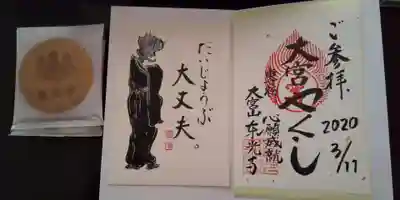 だいじょうぶ
大丈夫。
ご参拝
大宮やくし
2020
3/11
心願成就
大宮山東光寺